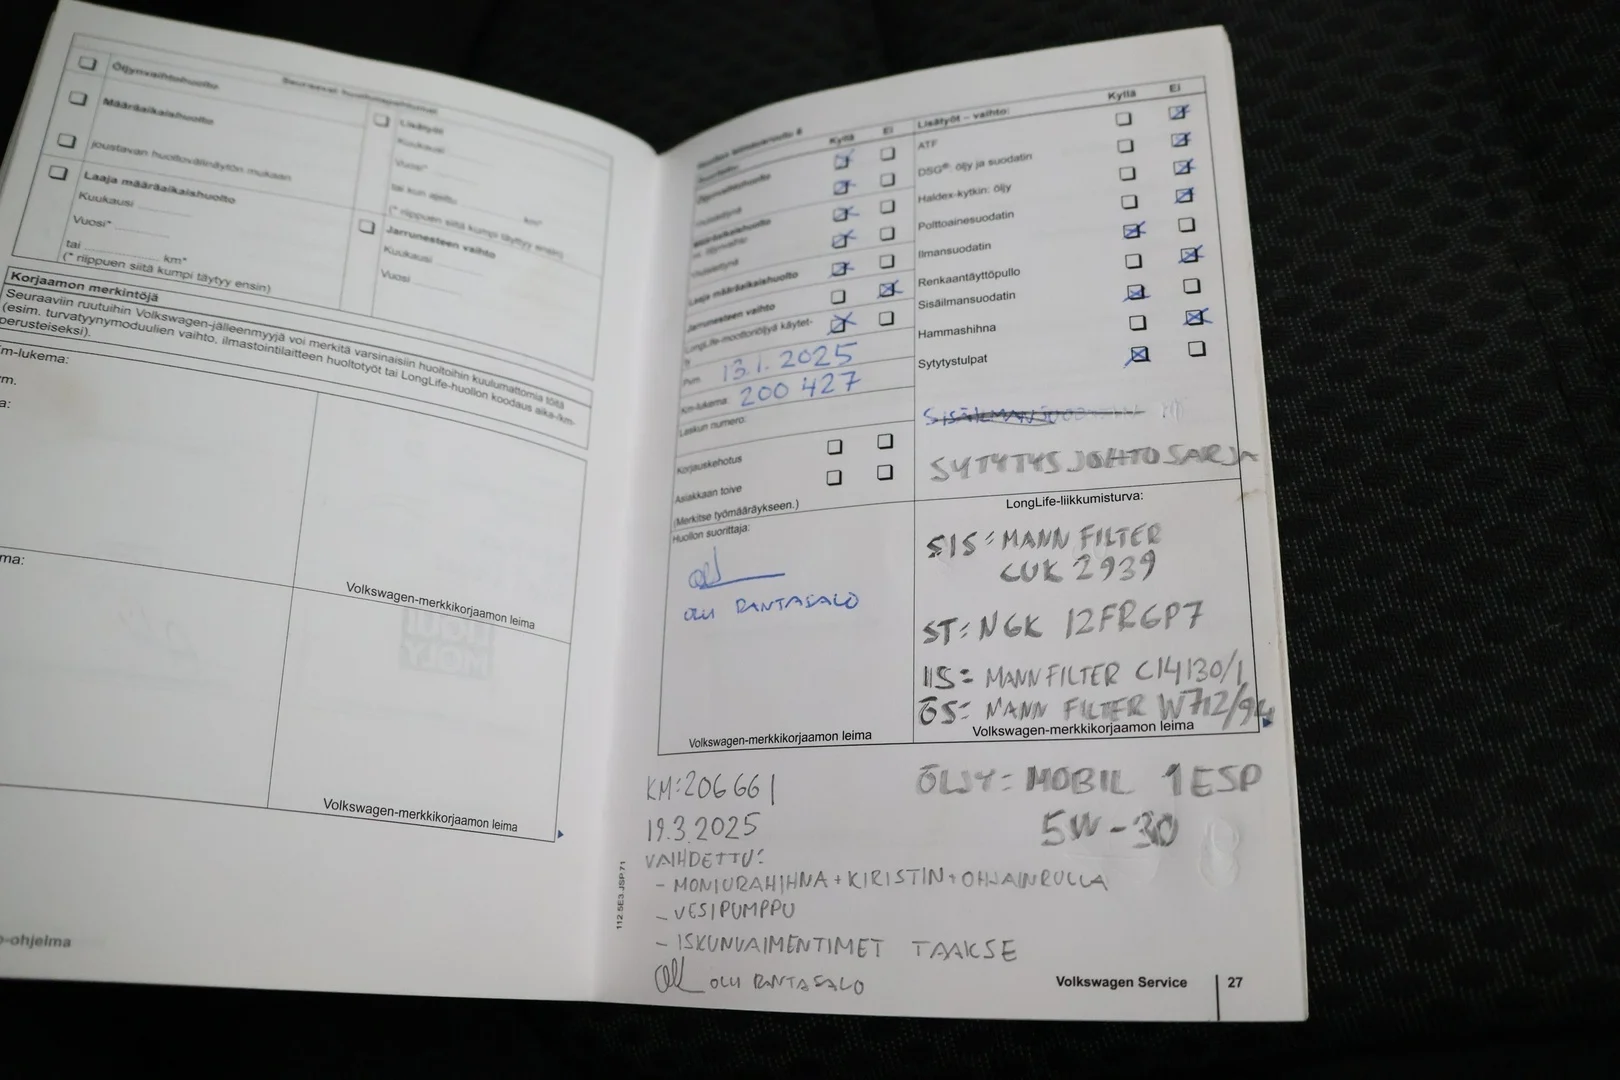 Seuraavat huoltotapahtumat
Öljynvaihtohuolto
Määräaikaishuolto
joustavan huoltovälinäytön mukaan
Laaja määräaikaishuolto
Kuukausi
Vuosi*
tai km*
(* riippuen siitä kumpi täytyy ensin)
Lisätyöt
Kuukausi
Vuosi*
tai kun ajettu km*
(* riippuen siitä kumpi täytyy ensin)
Jarrunesteen vaihto
Kuukausi
Vuosi
Korjaamon merkintöjä
Seuraaviin ruutuihin Volkswagen-jälleenmyyjä voi merkitä varsinaisiin huoltoihin kuulumattomia töitä
(esim. turvatyynymoduulien vaihto, ilmastointilaitteen huoltotyöt tai LongLife-huollon koodaus aika-/km-
perusteiseksi).
m-lukema:
Volkswagen-merkkikorjaamon leima
Volkswagen-merkkikorjaamon leima
o-ohjelma
Kyllä Ei
Öljynvaihtohuolto
Määräaikaishuolto
Laaja määräaikaishuolto
Jarrunesteen vaihto
LongLife-moottoriöljyä käytet-
ty
Pvm. 13.1.2025
Km-lukema: 200 427
Laskun numero:
Korjauskehotus
Asiakkaan toive
(Merkitse työmääräykseen.)
Huollon suorittaja:
OLLI RANTASALO
Volkswagen-merkkikorjaamon leima
Lisätyöt – vaihto: Kyllä Ei
ATF
DSG®: öljy ja suodatin
Haldex-kytkin: öljy
Polttoainesuodatin
Ilmansuodatin
Renkaantäyttöpullo
Sisäilmansuodatin
Hammashihna
Sytytystulpat
SYTYTYSJOHTOSARJA
LongLife-liikkumisturva:
SIS: MANN FILTER
CUK 2939
ST: NGK 1ZFR6P7
IIS= MANN FILTER C14130/1
ÖS= MANN FILTER W712/94
Volkswagen-merkkikorjaamon leima
ÖLJY= MOBIL 1 ESP
5W-30
KM:206661
19.3.2025
VAIHDETTU:
- MONIURAHIHNA + KIRISTIN + OHJAINRULLA
- VESIPUMPPU
- ISKUNVAIMENTIMET TAAKSE
OLLI RANTASALO
112.5E3.JSP.71
Volkswagen Service 27